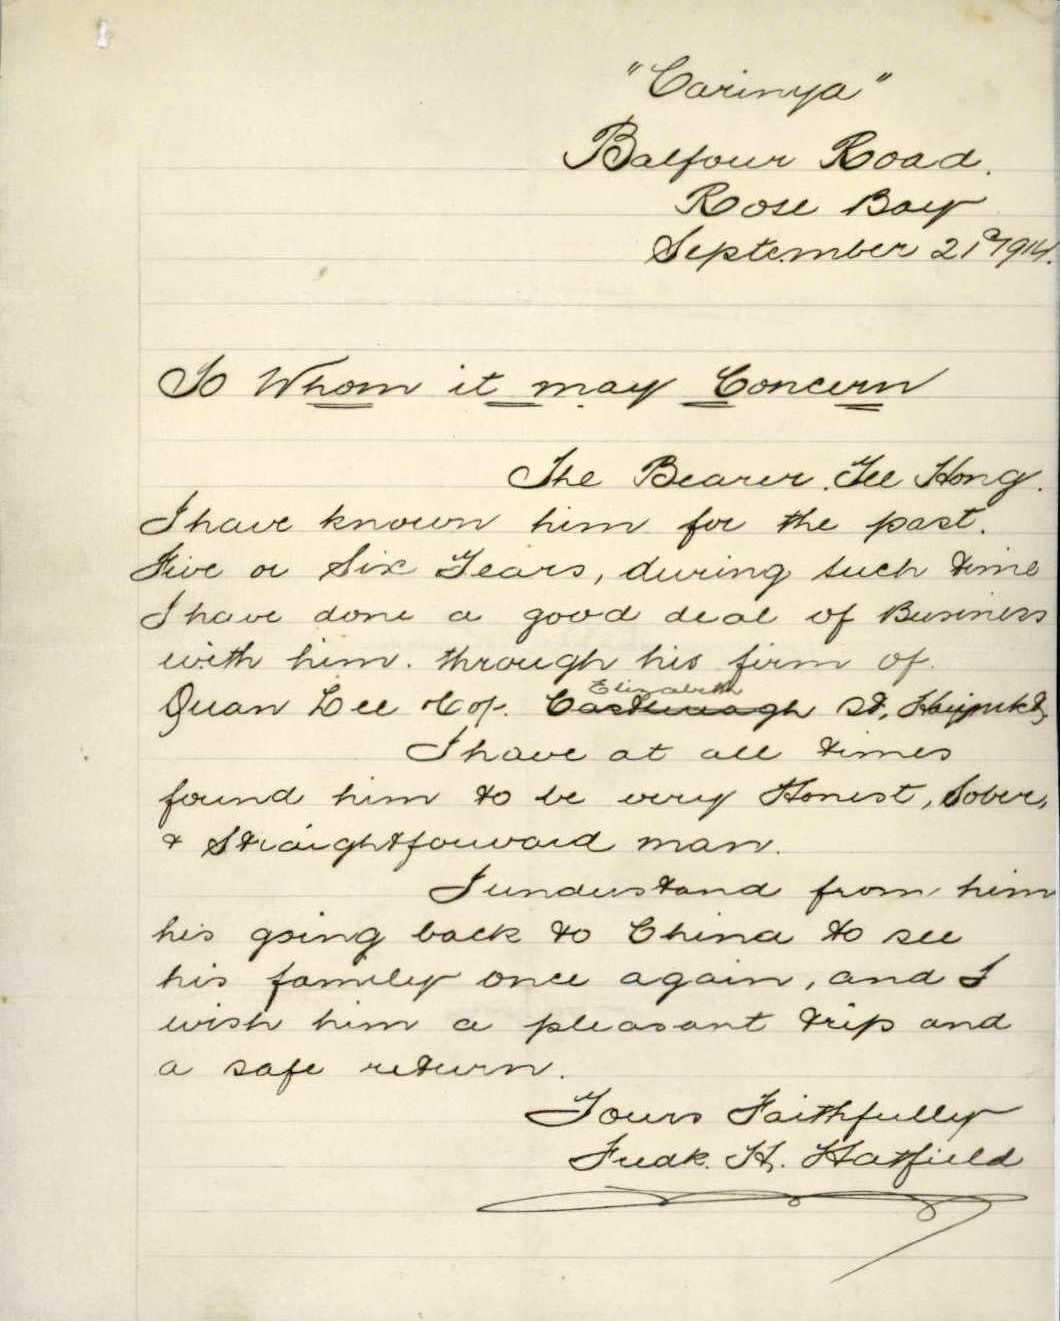 "Carinya"
Balfour Road.
Rose Bay
September 21st 1914.
To Whom it may Concern
The Bearer. Yee Hong.
I have known him for the past.
Five or Six Years, during such time
I have done a good deal of Business
with him. through his firm of.
Elizabeth
Quan Lee & Co. Castlereagh St, Haymkt,
I have at all times
found him to be very Honest, Sober,
& Straightforward man.
I understand from him
his going back to China to see
his family once again, and I
wish him a pleasant trip and
a safe return.
Yours Faithfully
Fredk. H. Hatfield